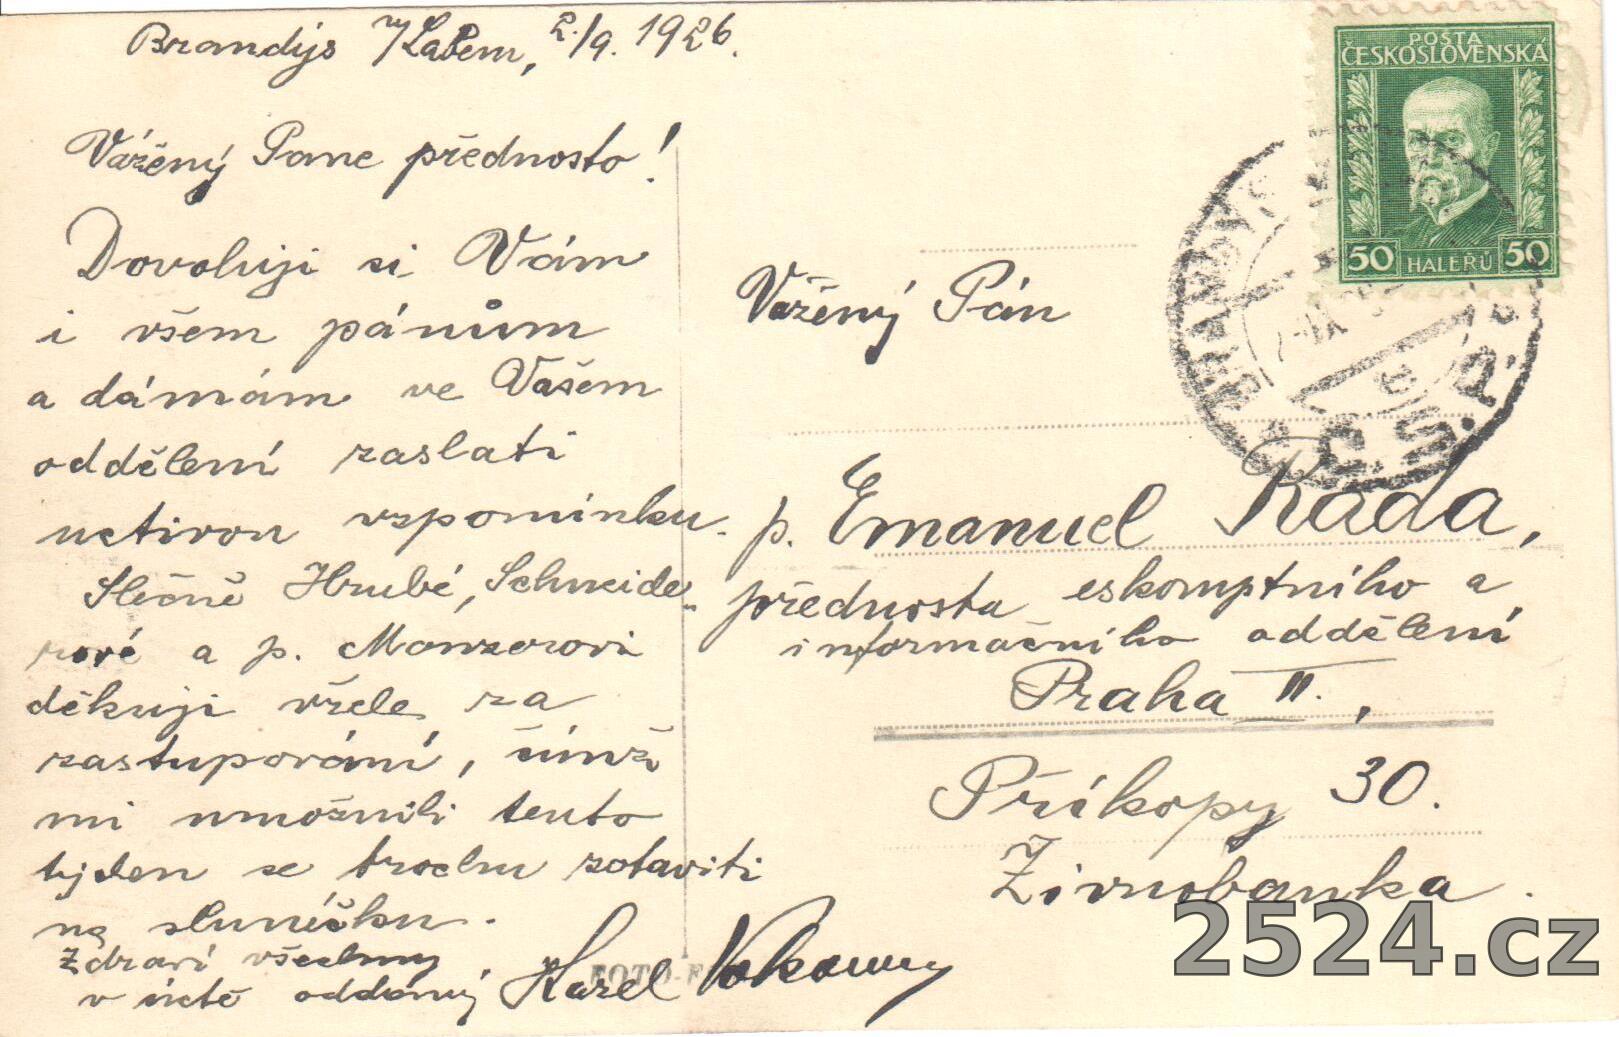 Brandýs n/Labem, 2./9. 1926.
Vážený Pane přednosto!
Dovoluji si Vám
i všem pánům
a dámám ve Vašem
oddělení zaslati
uctivou vzpomínku.
Slečně Hrubé, Schneide„
rové a p. Manzerovi
děkuji vřele za
zastupování, čímž
mi umožnili tento
týden se trochu zotaviti
na sluníčku.
Zdraví všechny
v úctě oddaný Karel
FOTO-F
POSTA
ČESKOSLOVENSKÁ
50 HALÉŘŮ 50
BRANDÝS
Č.S.P.
Vážený Pán
p. Emanuel Rada,
přednosta eskomptního a
informačního oddělení
Praha II.,
Příkopy 30.
Živnobanka.
2524.cz